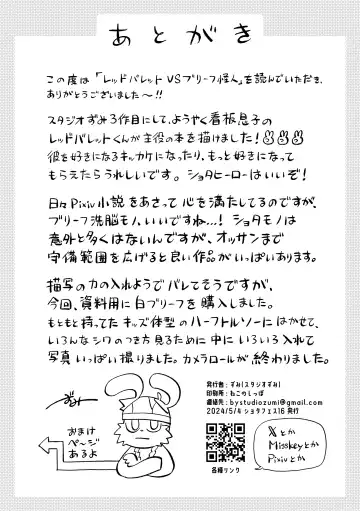 あとがき
この度は「レッドバレットVSブリーフ怪人」を読んでいただき、
ありがとうございました〜!!
スタジオずみ3作目にして、ようやく看板息子の
レッドバレットくんが主役の本を描けました!
彼を好きになるキッカケになったり、もっと好きになって
もらえたらうれしいです。ショタヒーローはいいぞ!
日々Pixiv小説をあさって心を満たしてるのですが、
ブリーフ洗脳モノ、いいですね…! ショタモノは
意外と多くはないんですが、オッサンまで
守備範囲を広げると良い作品がいっぱいあります。
描写の力の入れようでバレてそうですが、
今回、資料用に白ブリーフを購入しました。
もともと持ってたキッズ体型のハーフトルソーにはかせて、
いろんなシワのつき方見るために中にいろいろ入れて
写真いっぱい撮りました。カメラロールが終わりました。
ずみ
おまけ
ページ
あるよ
発行者:ずみ(スタジオずみ)
印刷所:ねこのしっぽ
連絡先:bystudiozumi@gmail.com
2024/5/4 ショタフェス16 発行
各種リンク
Xとか
Misskeyとか
Pixivとか